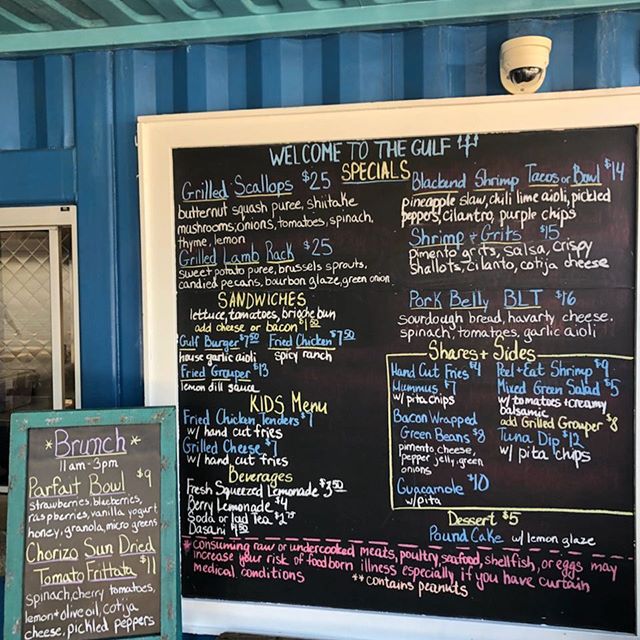 WELCOME TO THE GULF
SPECIALS
Grilled Scallops $25
butternut squash puree, shiitake
mushrooms, onions, tomatoes, spinach,
thyme, lemon
Grilled Lamb Rack $25
sweet potato puree, brussels sprouts,
candied pecans, bourbon glaze, green onion
SANDWICHES
lettuce, tomatoes, brioche bun
add cheese or bacon $1.50
Gulf Burger $7.50 Fried Chicken $7.50
house garlic aioli spicy ranch
Fried Grouper $13
lemon dill sauce
KIDS Menu
Fried Chicken Tenders $7
w/ hand cut fries
Grilled Cheese $7
w/ hand cut fries
Beverages
Fresh Squeezed Lemonade $3.50
Berry Lemonade $4
Soda or Iced Tea $1.75
Dasani $1.50
Blackend Shrimp Tacos or Bowl $14
pineapple slaw, chili lime aioli, pickled
peppers, cilantro, purple chips
Shrimp + Grits $15
pimento grits, salsa, crispy
shallots, cilanto, cotija cheese
Pork Belly BLT $16
sourdough bread, havarty cheese,
spinach, tomatoes, garlic aioli
Shares + Sides
Hand Cut Fries $4
Hummus $7
w/ pita chips
Bacon Wrapped
Green Beans $8
pimento cheese,
pepper jelly, green
onions
Guacamole $10
w/ pita
Peel + Eat Shrimp $9
Mixed Green Salad $5
w/ tomatoes + creamy
balsamic
add Grilled Grouper $8
Tuna Dip $12
w/ pita chips
Dessert $5
Pound Cake w/ lemon glaze
*consuming raw or undercooked meats, poultry, seafood, shellfish, or eggs may
increase your risk of food born illness especially if you have curtain
medical conditions
**contains peanuts
*Brunch*
11am-3pm
Parfait Bowl $9
strawberries, blueberries,
raspberries, vanilla yogurt
honey, granola, micro greens
Chorizo Sun Dried
Tomato Frittata $11
spinach, cherry tomatoes,
lemon + olive oil, cotija
cheese, pickled peppers